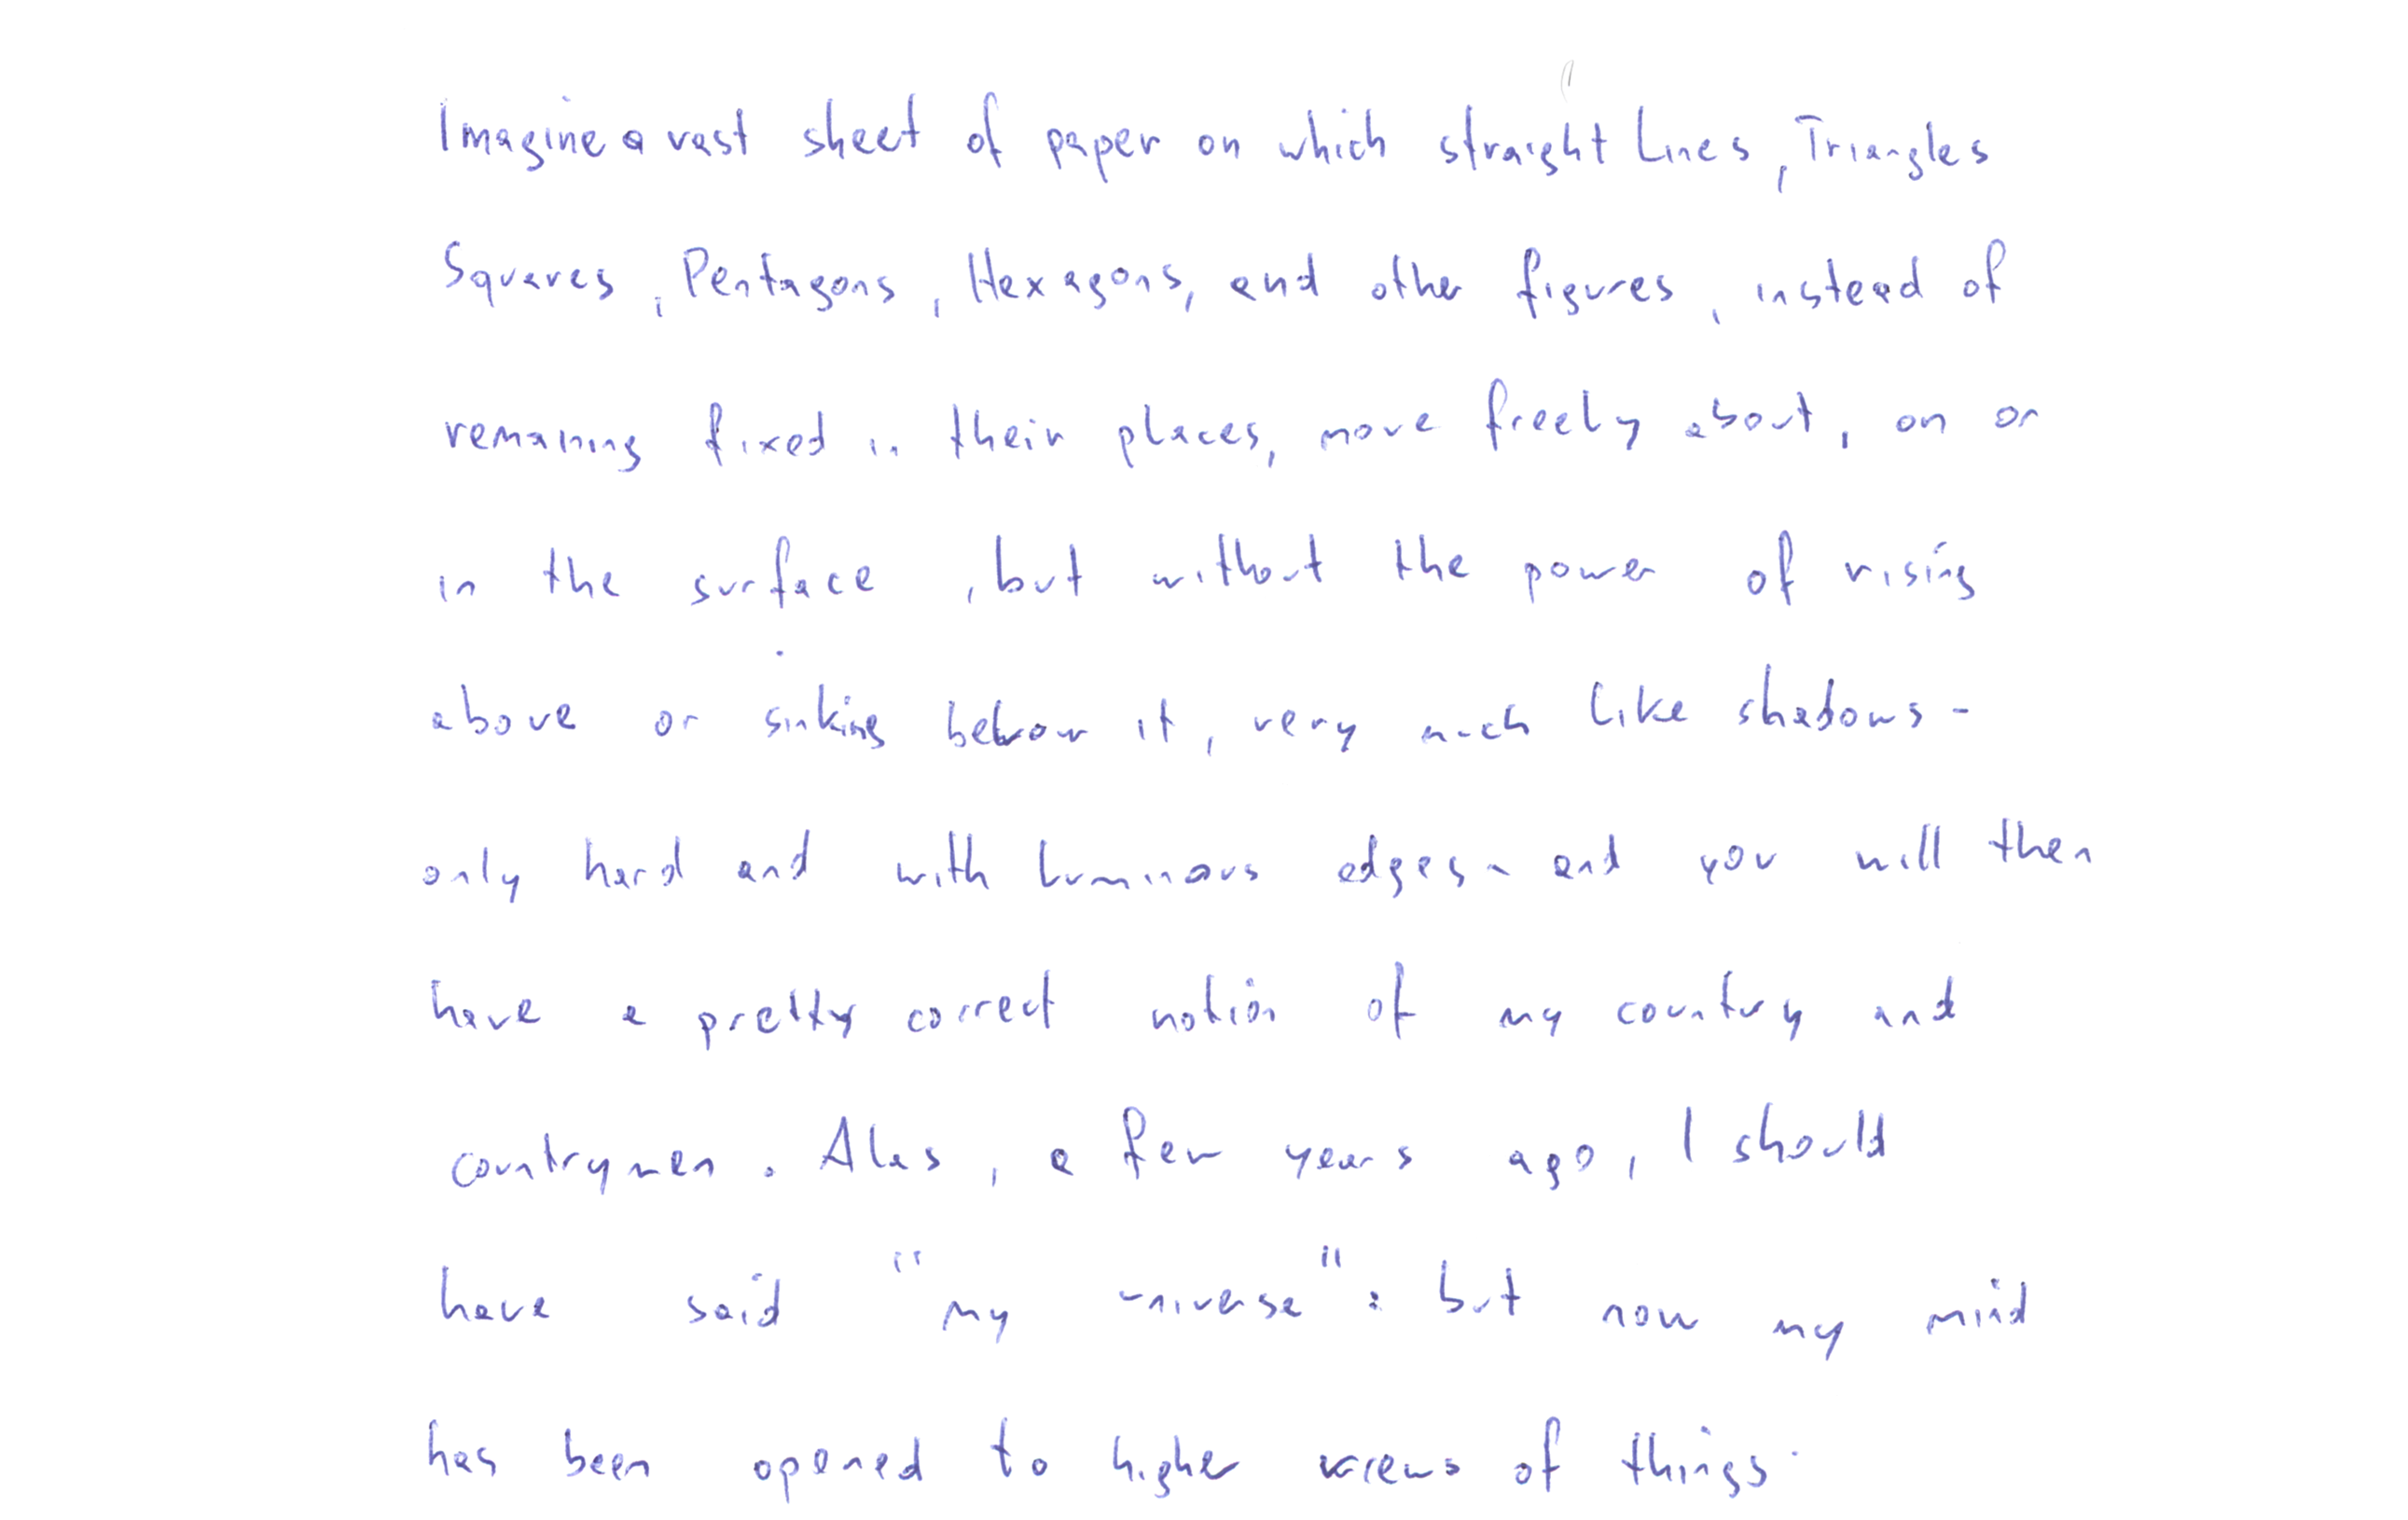 Imagine a vast sheet of paper on which straight Lines, Triangles
Squares, Pentagons, Hexagons, and other figures, instead of
remaining fixed in their places, move freely about, on or
in the surface, but without the power of rising
above or sinking below it, very much like shadows -
only hard and with luminous edges - and you will then
have a pretty correct notion of my country and
countrymen. Alas, a few years ago, I should
have said "my universe": but now my mind
has been opened to higher views of things.